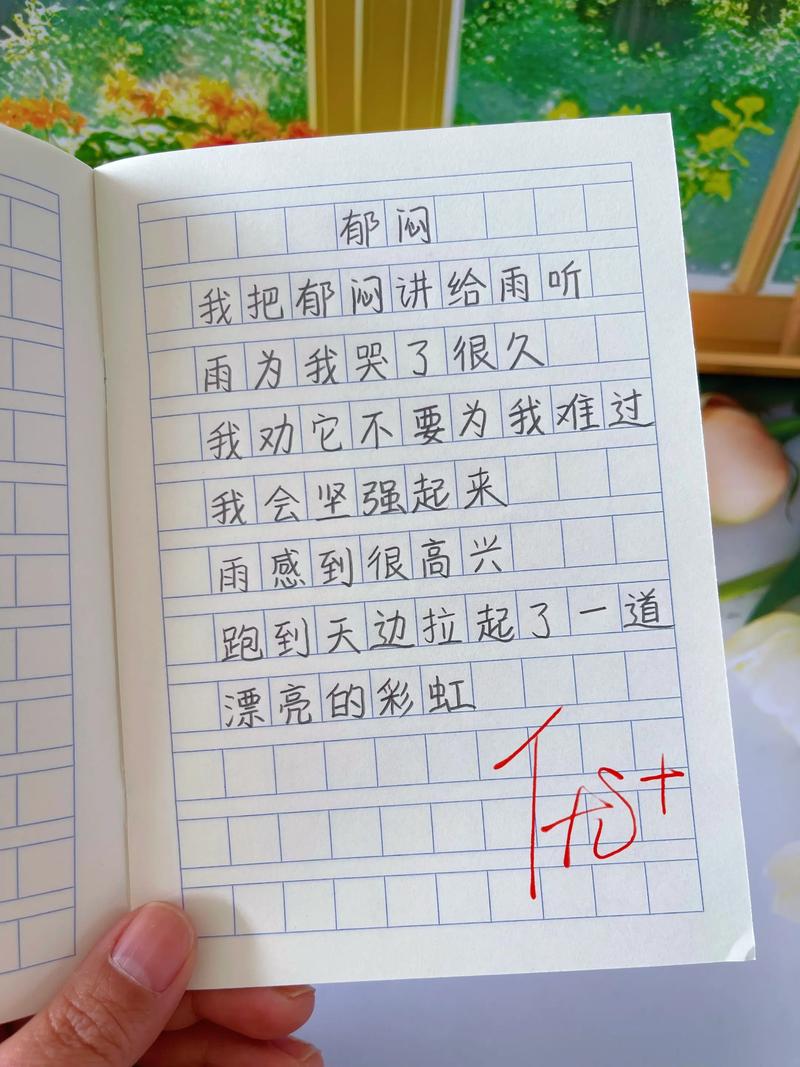 郁闷
我把郁闷讲给雨听
雨为我哭了很久
我劝它不要为我难过
我会坚强起来
雨感到很高兴
跑到天边拉起了一道
漂亮的彩虹